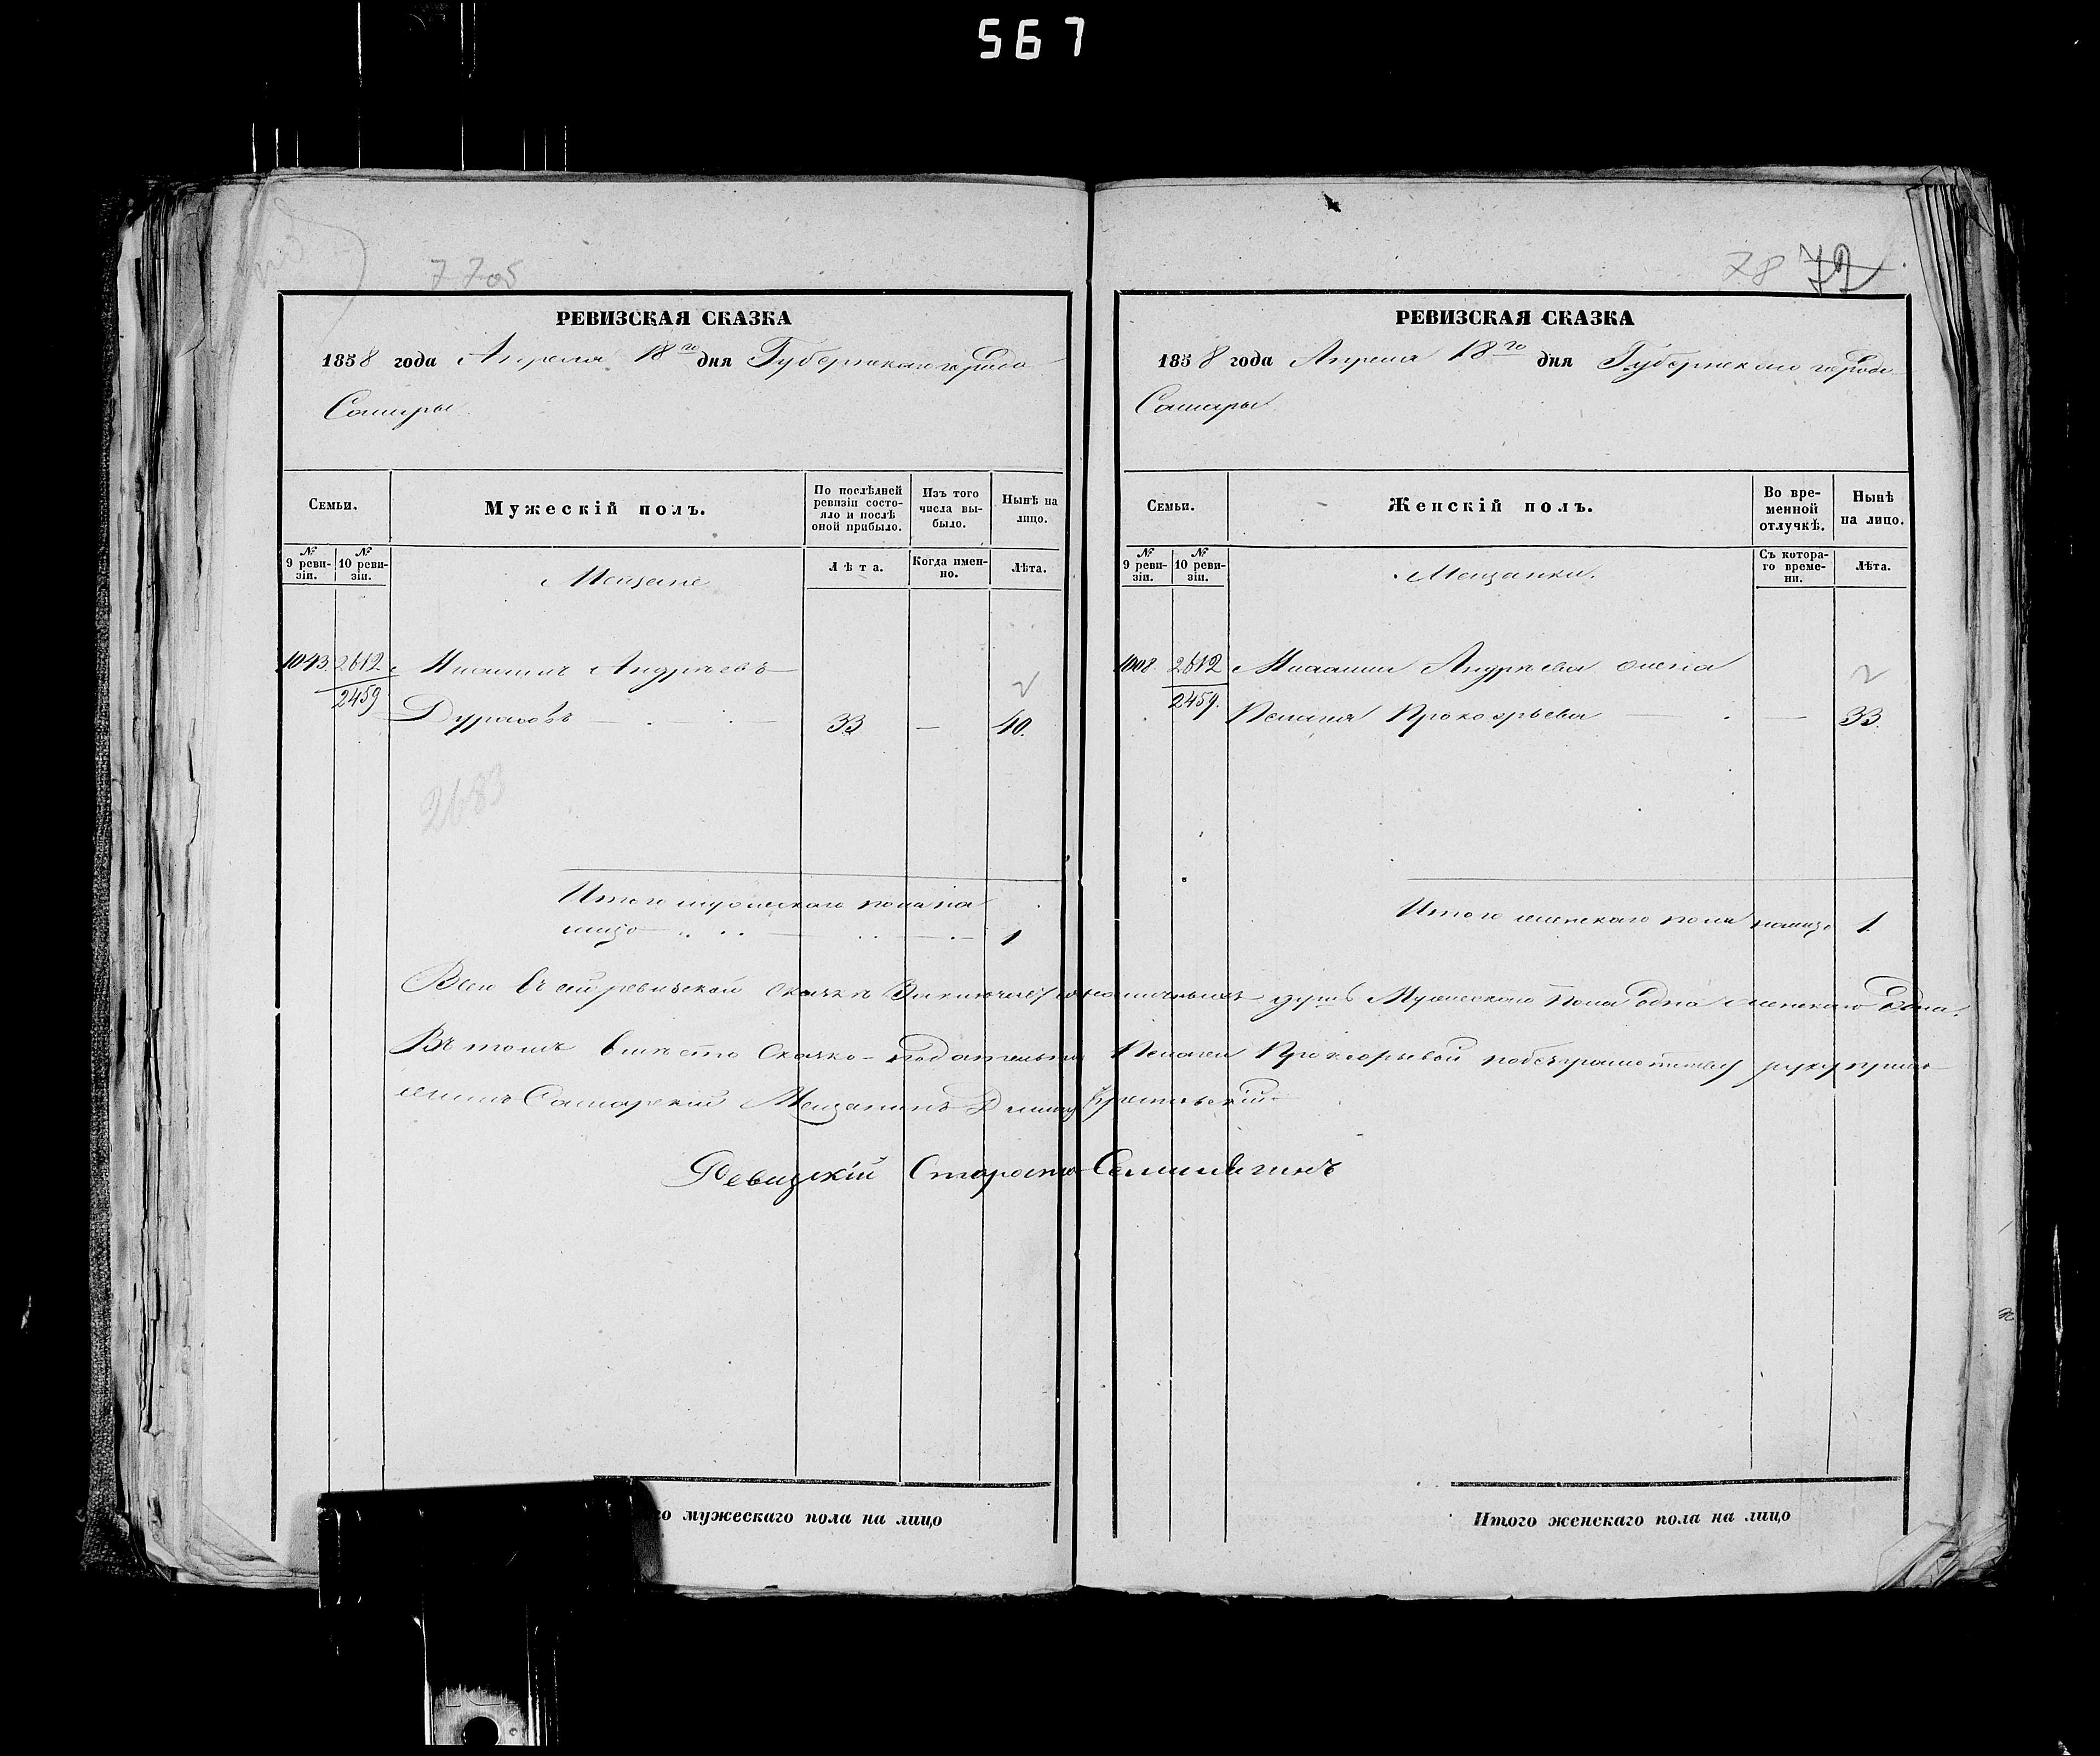 567
77 об
РЕВИЗСКАЯ СКАЗКА
1858 года Апреля 18го дня Губернскаго города
Самары.
Семьи.
Мужескій полъ.
По послѣдней ревизіи состояло и послѣ оной прибыло.
Изъ того числа выбыло.
Нынѣ на лицо.
№ 9 ревизіи.
№ 10 ревизіи.
Мещане
Лѣта.
Когда именно.
Лѣта.
1043. 2612 Андреевъ
2459 33 — 40.
2683
Итого мужескаго пола на
лицо 1
78 72
РЕВИЗСКАЯ СКАЗКА
1858 года Апреля 18го дня Губернскаго города
Самары.
Семьи.
Женскій полъ.
Во временной отлучкѣ.
Нынѣ на лицо.
№ 9 ревизіи.
№ 10 ревизіи.
Мещанки.
Съ котораго времени.
Лѣта.
1008. 2612 Андреева жена
2459. Пелагея Прокофьева — 33.
Итого женскаго пола налицо 1.
Всего въ сей ревизской сказкѣ наличныхъ душъ Мужескаго Пола одна женскаго Одна.
Въ томъ вмѣсто Сказко-подательницы Пелагеи Прокофьевой
Самарскій Мещанинъ
Ревизскій Староста
го мужескаго пола на лицо
Итого женскаго пола на лицо